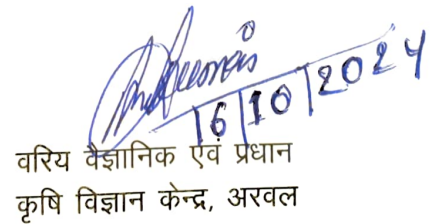 16/10/2024
वरिय वैज्ञानिक एवं प्रधान
कृषि विज्ञान केन्द्र, अरवल